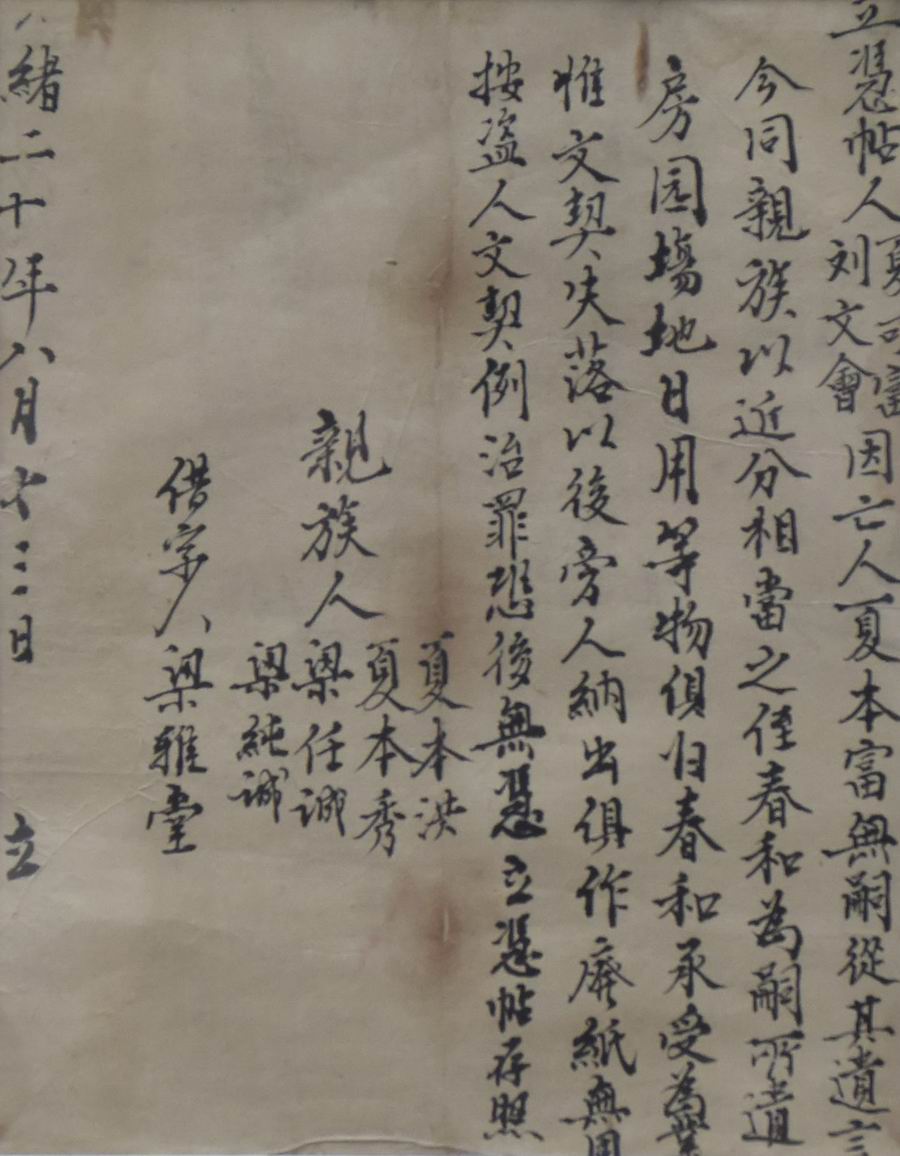 立憑帖人夏司富刘文會因亡人夏本富無嗣從其遺言
今同親族以近分相當之侄春和為嗣所遺
房园塲地日用等物俱归春和承受為業
惟文契失落以後旁人納出俱作廢紙無用
按盗人文契例治罪恐後無憑立憑帖存照
夏本洪
夏本秀
親族人梁任誠
梁純誠
借字人梁雅堂
緒二十年八月十三日 立